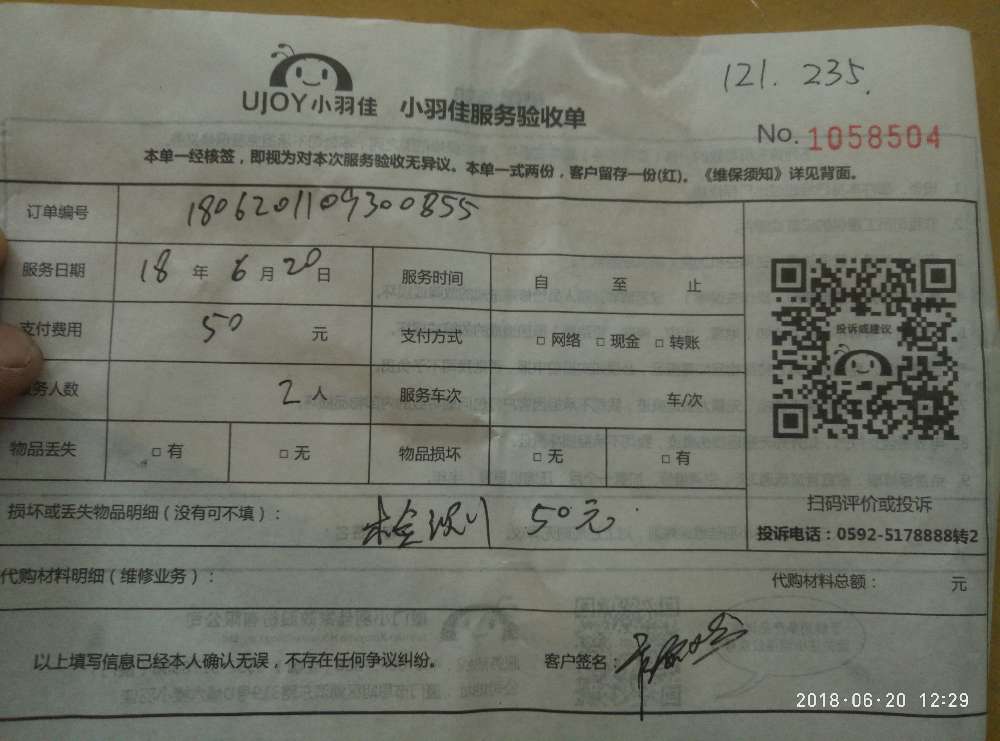 121. 235.
UJOY小羽佳 小羽佳服务验收单
No. 1058504
本单一经核签，即视为对本次服务验收无异议。本单一式两份，客户留存一份(红)。《维保须知》详见背面。
订单编号 1806201109300855
服务日期 18 年 6 月 20 日 服务时间 自 至 止
支付费用 50 元 支付方式 □ 网络 □ 现金 □ 转账
投诉或建议
服务人数 2 人 服务车次 车/次
物品丢失 □ 有 □ 无 物品损坏 □ 无 □ 有
扫码评价或投诉
损坏或丢失物品明细（没有可不填）： 检测 50元
投诉电话：0592-5178888转2
代购材料明细（维修业务）： 代购材料总额： 元
以上填写信息已经本人确认无误，不存在任何争议纠纷。 客户签名：
2018-06-20 12:29